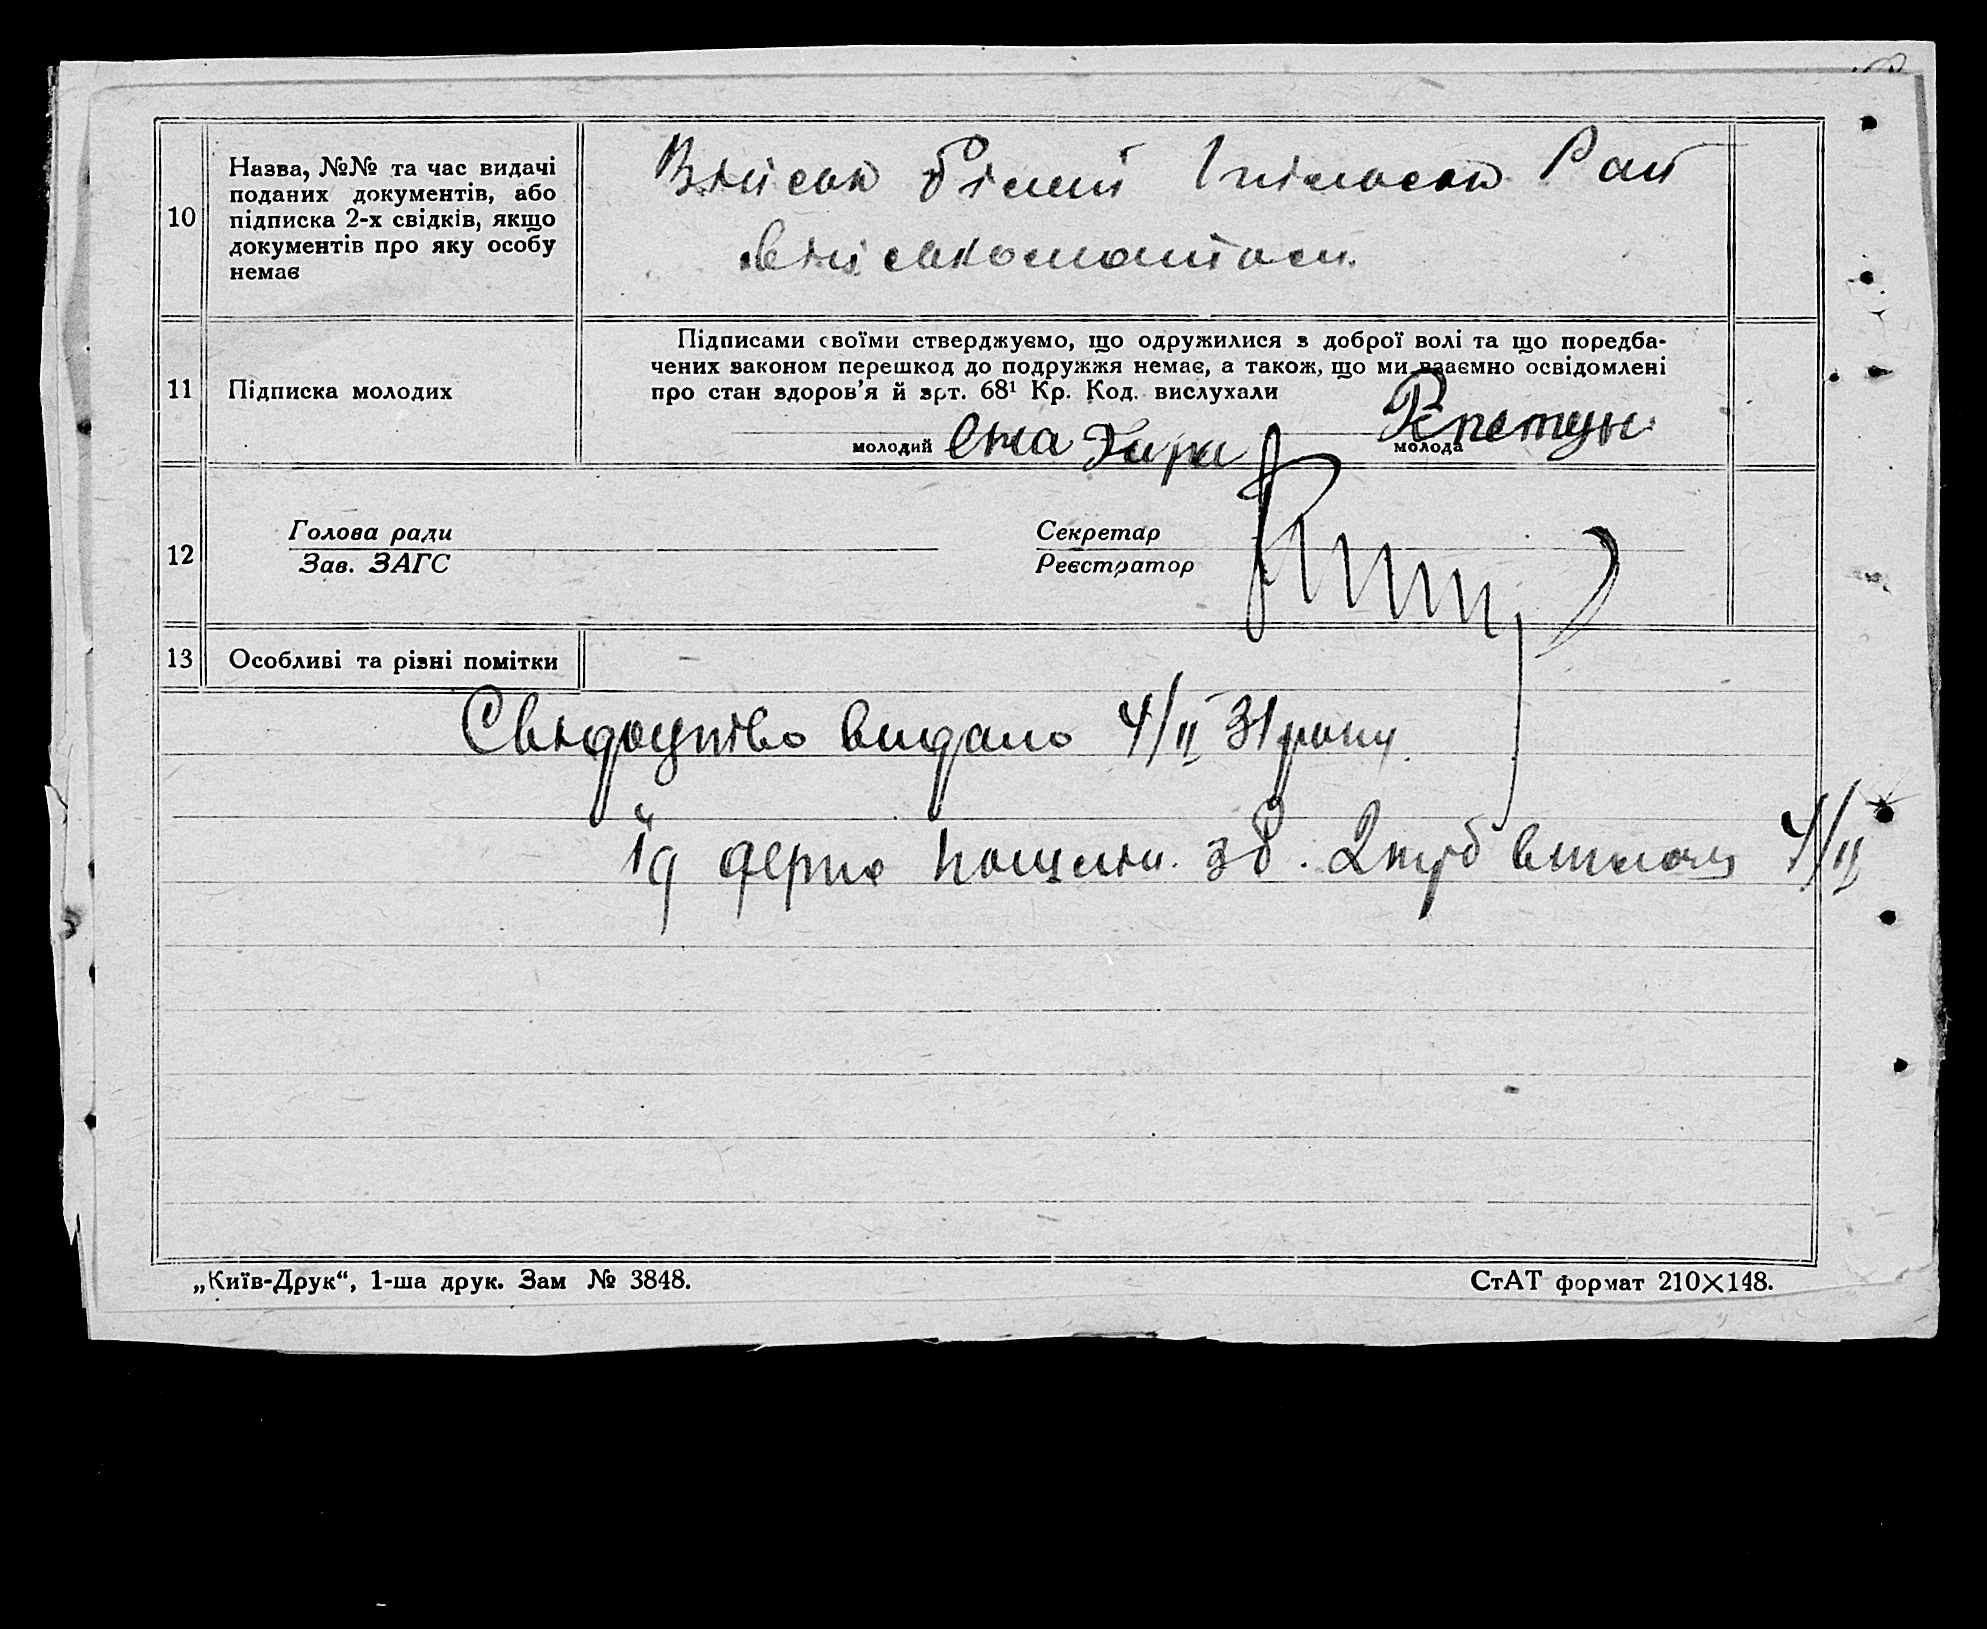 10
Назва, №№ та час видачі
поданих документів, або
підписка 2-х свідків, якщо
документів про яку особу
немає
Військ білет Рай
військоматом.
11
Підписка молодих
Підписами своїми стверджуємо, що одружилися з доброї волі та що поредба-
чених законом перешкод до подружжя немає, а також, що ми взаємно освідомлені
про стан здоров'я й арт. 68¹ Кр. Код. вислухали
молодий
молода
12
Голова ради
Зав. ЗАГС
Секретар
Реєстратор
13
Особливі та різні помітки
Свідоцтво видано 4/II 31 року
держ 2 руб 4/II
„Київ-Друк“, 1-ша друк. Зам № 3848.
СтАТ формат 210×148.